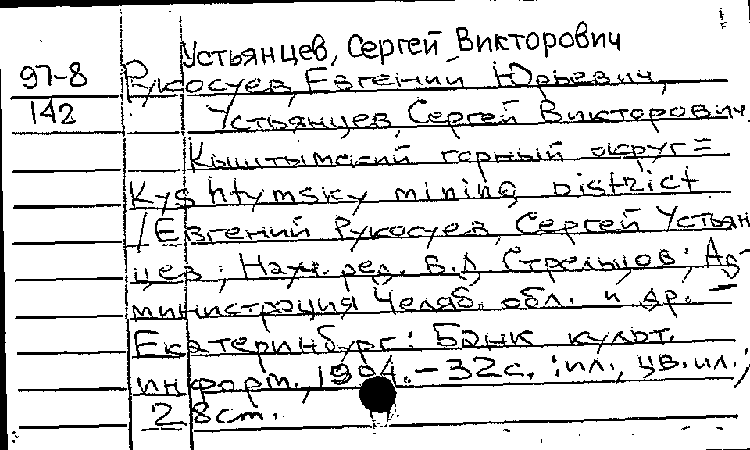 Устьянцев, Сергей Викторович
97-8 Рукосуев, Евгений Юрьевич,
142 Устьянцев, Сергей Викторович
Кыштымский горный округ =
Kyshtymsky mining district
/ Евгений Рукосуев, Сергей Устьян
цев; Науч. ред. В.Д. Стрельцов; Ад-
министрация Челяб. обл. и др. –
Екатеринбург: Банк культ.
информ., 1994. – 32с. : ил., цв. ил.;
28cm.